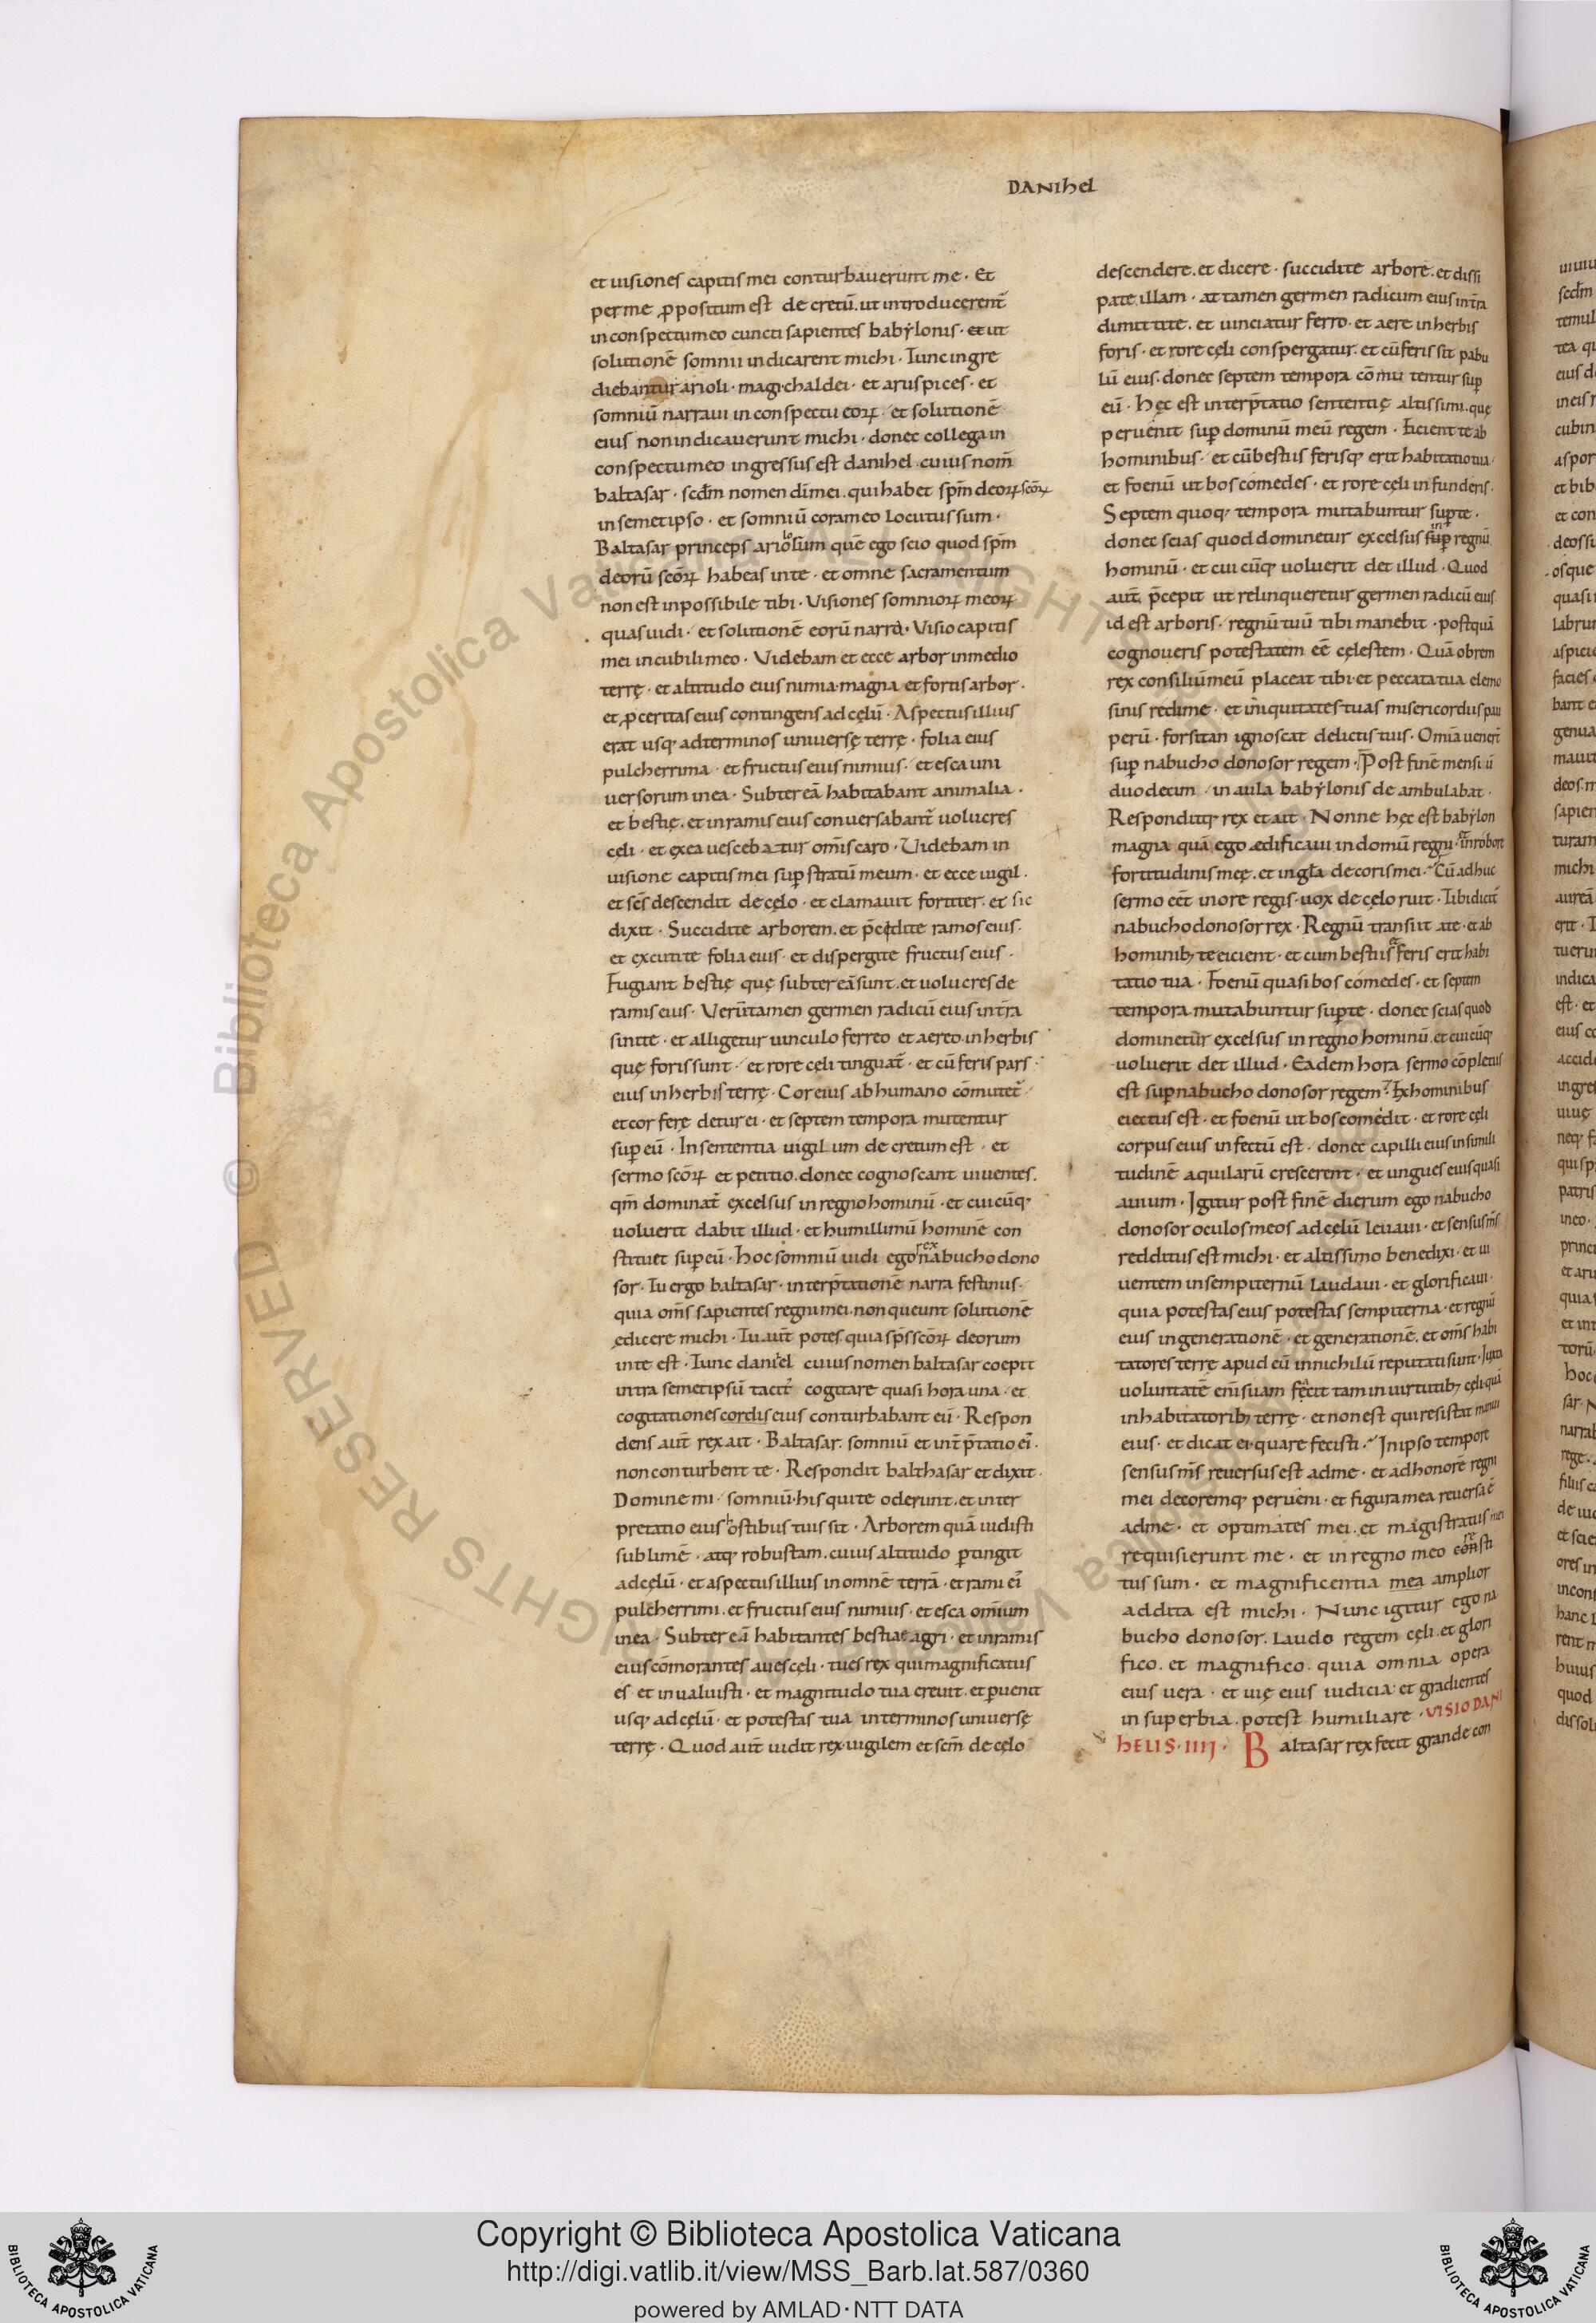 DANIhel
et uisiones capitis mei conturbauerunt me · Et
per me ꝓpositum est decretū. ut introducerent̄
in conspectu meo cuncti sapientes babẏlonis · et ut
solutionē somnii indicarent michi · Tunc ingre
diebantur arioli · magi · chaldei · et aruspices · et
somniū narraui in conspectu eoꝝ · et solutionē
eius non indicauerunt michi · donec collega in
conspectu meo ingressus est danihel · cuius nom̄
baltasar · scd̄m nomen dī mei · qui habet spm̄ deoꝝ scōꝝ
in semetipso · et somniū coram eo locutus sum ·
Baltasar princeps ariolosum quē ego scio quod spm̄
deorū scōꝝ habeas in te · et omne sacramentum
non est inpossibile tibi · Visiones somnioꝝ meoꝝ
quas uidi · et solutionē eorū narra · Visio capitis
mei in cubili meo · Videbam et ecce arbor in medio
terrę · et altitudo eius nimia · magna et fortis arbor ·
et ꝓceritas eius contingens ad cęlū · Aspectus illius
erat usq; ad terminos uniuersę terrę · folia eius
pulcherrima · et fructus eius nimius · et esca uni
uersorum in ea · Subter eā habitabant animalia ·
et bestię · et in ramis eius conuersabant̄ uolucres
cęli · et ex ea uescebatur om̄is caro · Uidebam in
uisione capitis mei suꝑ stratū meum · et ecce uigil ·
et scs̄ descendit de cęlo · et clamauit fortiter · et sic
dixit · Succidite arborem · et p̄cidite ramos eius ·
et excutite folia eius · et dispergite fructus eius ·
Fugiant bestię quę subter eā sunt · et uolucres de
ramis eius · Verūtamen germen radicū eius in tr̄a
sinite · et alligetur uinculo ferreo et aereo in herbis
quę foris sunt · et rore cęli tinguat̄ · et cū feris pars ·
eius in herbis terrę · Cor eius ab humano cōmutet̄ ·
et cor ferę detur ei · et septem tempora mutentur
suꝑ eū · In sententia uigilum decretum est · et
sermo scōꝝ et petitio · donec cognoscant uiuentes ·
qm̄ dominat̄ excelsus in regno hominū · et cuicūq;
uoluerit dabit illud · et humillimū hominē con
stituet suꝑ eū · Hoc somniū uidi ego rex nabuchodono
sor · Tu ergo baltasar · interp̄tationē narra festinus ·
quia om̄s sapientes regni mei · non queunt solutionē
ędicere michi · Tu aut̄ potes · quia sp̄s scōꝝ deorum
in te est · Tunc daniel cuius nomen baltasar coepit
intra semetipsū tacit᷒ cogitare quasi hora una · et
cogitationes cordis eius conturbabant eū · Respon
dens aut̄ rex ait · Baltasar · somniū et int̄p̄tatio ei᷒ ·
non conturbent te · Respondit balthasar et dixit ·
Domine mi · somniū · his qui te oderunt · et inter
pretatio eius hostibus tuis sit · Arborem quā uidisti
sublimē · atq; robustam · cuius altitudo ꝑtingit
ad cęlū · et aspectus illius in omnē terrā · et rami ei᷒
pulcherrimi · et fructus eius nimius · et esca om̄ium
in ea · Subter eā habitantes bestiae agri · et in ramis
eius cōmorantes aues cęli · tu es rex qui magnificatus
es · et inualuisti · et magnitudo tua creuit · et ꝑuenit
usq; ad cęlū · et potestas tua in terminos uniuersę
terrę · Quod aut̄ uidit rex · uigilem et scm̄ de cęlo
descendere · et dicere · succidite arborē · et dissi
pate illam · at tamen germen radicum eius in tr̄a
dimittite · et uinciatur ferro · et aere in herbis
foris · et rore cęli conspergatur · et cū feris sit pabu
lū eius · donec septem tempora cōmutentur suꝑ
eū · Hęc est interp̄tatio sententię altissimi · quę
peruenit suꝑ dominū meū regem · Eicient te ab
hominibus · et cū bestiis ferisq; erit habitatio tua ·
et foenū ut bos comedes · et rore cęli infunderis ·
Septem quoq; tempora mutabuntur suꝑ te ·
donec scias quod dominetur excelsus in suꝑ regnū
hominū · et cuicūq; uoluerit det illud · Quod
aut̄ p̄cepit ut relinqueretur germen radicū eius
id est arboris · regnū tuū tibi manebit · postquā
cognoueris potestatem eē cęlestem · Quā obrem
rex consiliū meū placeat tibi · et peccata tua elemo
sinis redime · et iniquitates tuas misericordiis pau
perū · forsitan ignoscat delictis tuis · Omīa uener̄t
suꝑ nabuchodonosor regem · Post finē mensiū
duodecim · in aula babẏlonis deambulabat ·
Responditq; rex et ait · Nonne hęc est babẏlon
magna quā ego ædificaui in domū regni · et in robore
fortitudinis meę · et in gl̄a decoris mei · Cū adhuc
sermo eēt in ore regis · uox de cęlo ruit · Tibi dicit̄
nabuchodonosor rex · Regnū transiit a te · et ab
hominib; te eicient · et cum bestiis et feris erit habi
tatio tua · Foenū quasi bos comedes · et septem
tempora mutabuntur suꝑ te · donec scias quod
dominetur excelsus in regno hominū · et cuicūq;
uoluerit det illud · Eadem hora sermo cōpletus
est suꝑ nabuchodonosor regem · Ex hominibus
eiectus est · et foenū ut bos comedit · et rore cęli
corpus eius infectū est · donec capilli eius in simili
tudinē aquilarū crescerent · et ungues eius quasi
auium · Igitur post finē dierum ego nabucho
donosor oculos meos ad cęlū leuaui · et sensus ms̄
redditus est michi · et altissimo benedixi · et ui
uentem in sempiternū laudaui · et glorificaui ·
quia potestas eius potestas sempiterna · et regnū
eius in generationē · et generationē · et om̄s habi
tatores terrę apud eū in nichilū reputati sunt · Iuxta
uoluntatē eni suam fecit tam in uirtutib; cęli quā
in habitatorib; terrę · et non est qui resistat manui
eius · et dicat ei · quare fecisti · In ipso tempore
sensus ms̄ reuersus est ad me · et ad honorē regni
mei decoremq; perueni · et figura mea reuersa ē
ad me · et optimates mei · et magistratus mei
requisierunt me · et in regno meo re consti
tus sum · et magnificentia mea amplior
addita est michi · Nunc igitur ego na
buchodonosor · laudo regem cęli · et glori
fico · et magnifico · quia omnia opera
eius uera · et uię eius iudicia · et gradientes
in superbia · potest humiliare · VISIO DANI
HELIS · IIII · Baltasar rex fecit grande con
Copyright © Biblioteca Apostolica Vaticana
http://digi.vatlib.it/view/MSS_Barb.lat.587/0360
powered by AMLAD·NTT DATA